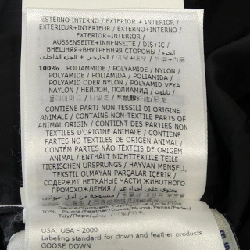 RETERNO INTERNO / EXTERIOR + INTERIOR /
EXTERIEUR+INTERIEUR / EXTERNO INTERNO /
EXTERIOR+INTERIOR /
AUSSENSEITE+INNENSEITE / DIŞ+İÇ /
100% POLIAMMIDE / POLYAMIDE / NYLON /
POLYAMIDE / POLIAMIDA / POLIAMIDA /
POLYAMID ODER NYLON / POLYAMID VEYA
CONTIENE PARTI NON TESSILI DI ORIGINE
ANIMALE / CONTAINS NON TEXTILE PARTS OF
ANIMAL ORIGIN / CONTIENT DES PARTIES NON
TEXTILES D'ORIGINE ANIMALE / CONTIENE
PARTES NO TEXTILES DE ORIGEN ANIMAL /
CONTÉM PARTES NÃO TEXTEIS DE ORIGEM
ANIMAL / ENTHÄLT NICHTTEXTILE TEILE
TIERISCHEN URSPRUNGS / HAYVAN MENŞELİ,
TEKSTİL OLMAYAN PARÇALAR İÇERİR /
СОДЕРЖИТ НЕТЕКСТИЛЬНЫЕ ЧАСТИ ЖИВОТНОГО
ПРОИСХОЖДЕНИЯ /
USA: USA - 2000
Labeling standard for down and feather products
GOOSE DOWN